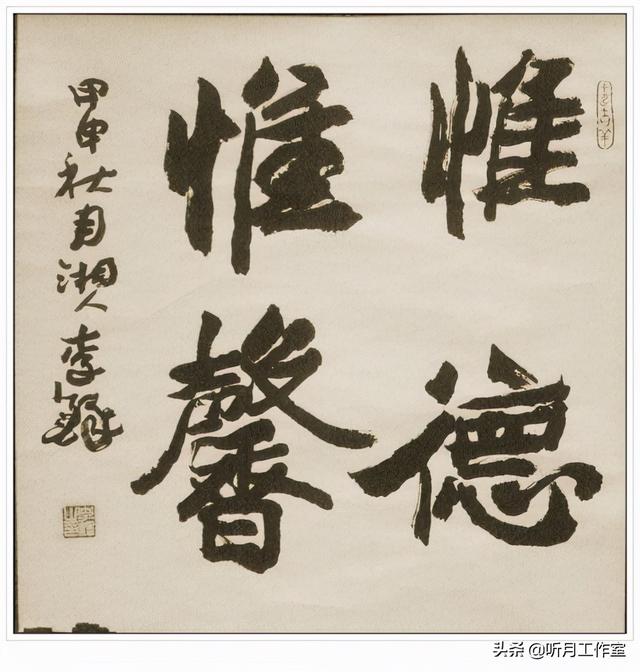 惟德
惟馨
甲申秋湘人李鐸
头条 @听月工作室